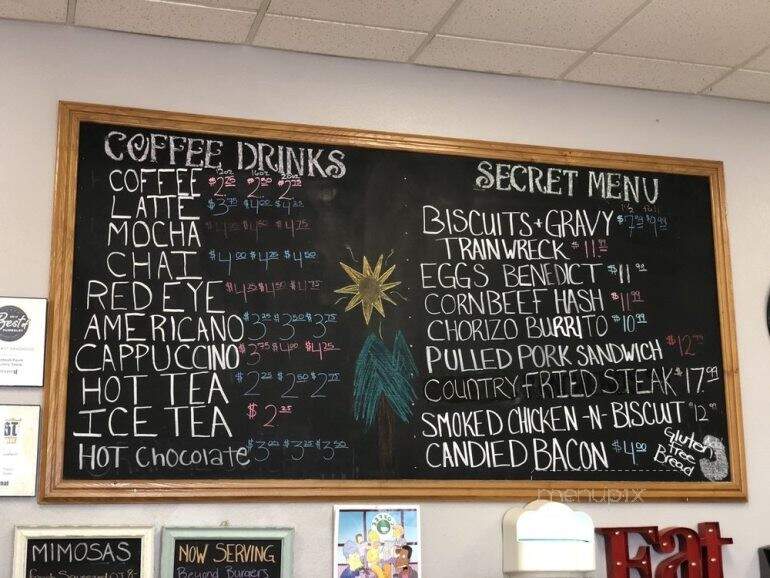 COFFEE DRINKS
12oz 16oz 20oz
COFFEE $2.25 $2.50 $2.75
LATTE $3.75 $4.00 $4.25
MOCHA $4.50 $4.75
CHAI $4.00 $4.25 $4.50
RED EYE $4.25 $4.50 $4.75
AMERICANO $3.25 $3.50 $3.75
CAPPUCCINO $3.75 $4.00 $4.25
HOT TEA $2.25 $2.50 $2.75
ICE TEA $2.25
HOT Chocolate $3.00 $3.25 $3.50
SECRET MENU
1/2 full
BISCUITS + GRAVY $7.99 $9.99
TRAINWRECK $11.99
EGGS BENEDICT $11.99
CORNBEEF HASH $11.99
CHORIZO BURRITO $10.99
PULLED PORK SANDWICH $12
COUNTRY FRIED STEAK $17.99
SMOKED CHICKEN -N- BISCUIT $12.99
CANDIED BACON $4.00
Gluten
Free
Bread
menupix
Best of
MIMOSAS
NOW SERVING
Beyond Burgers
Eat